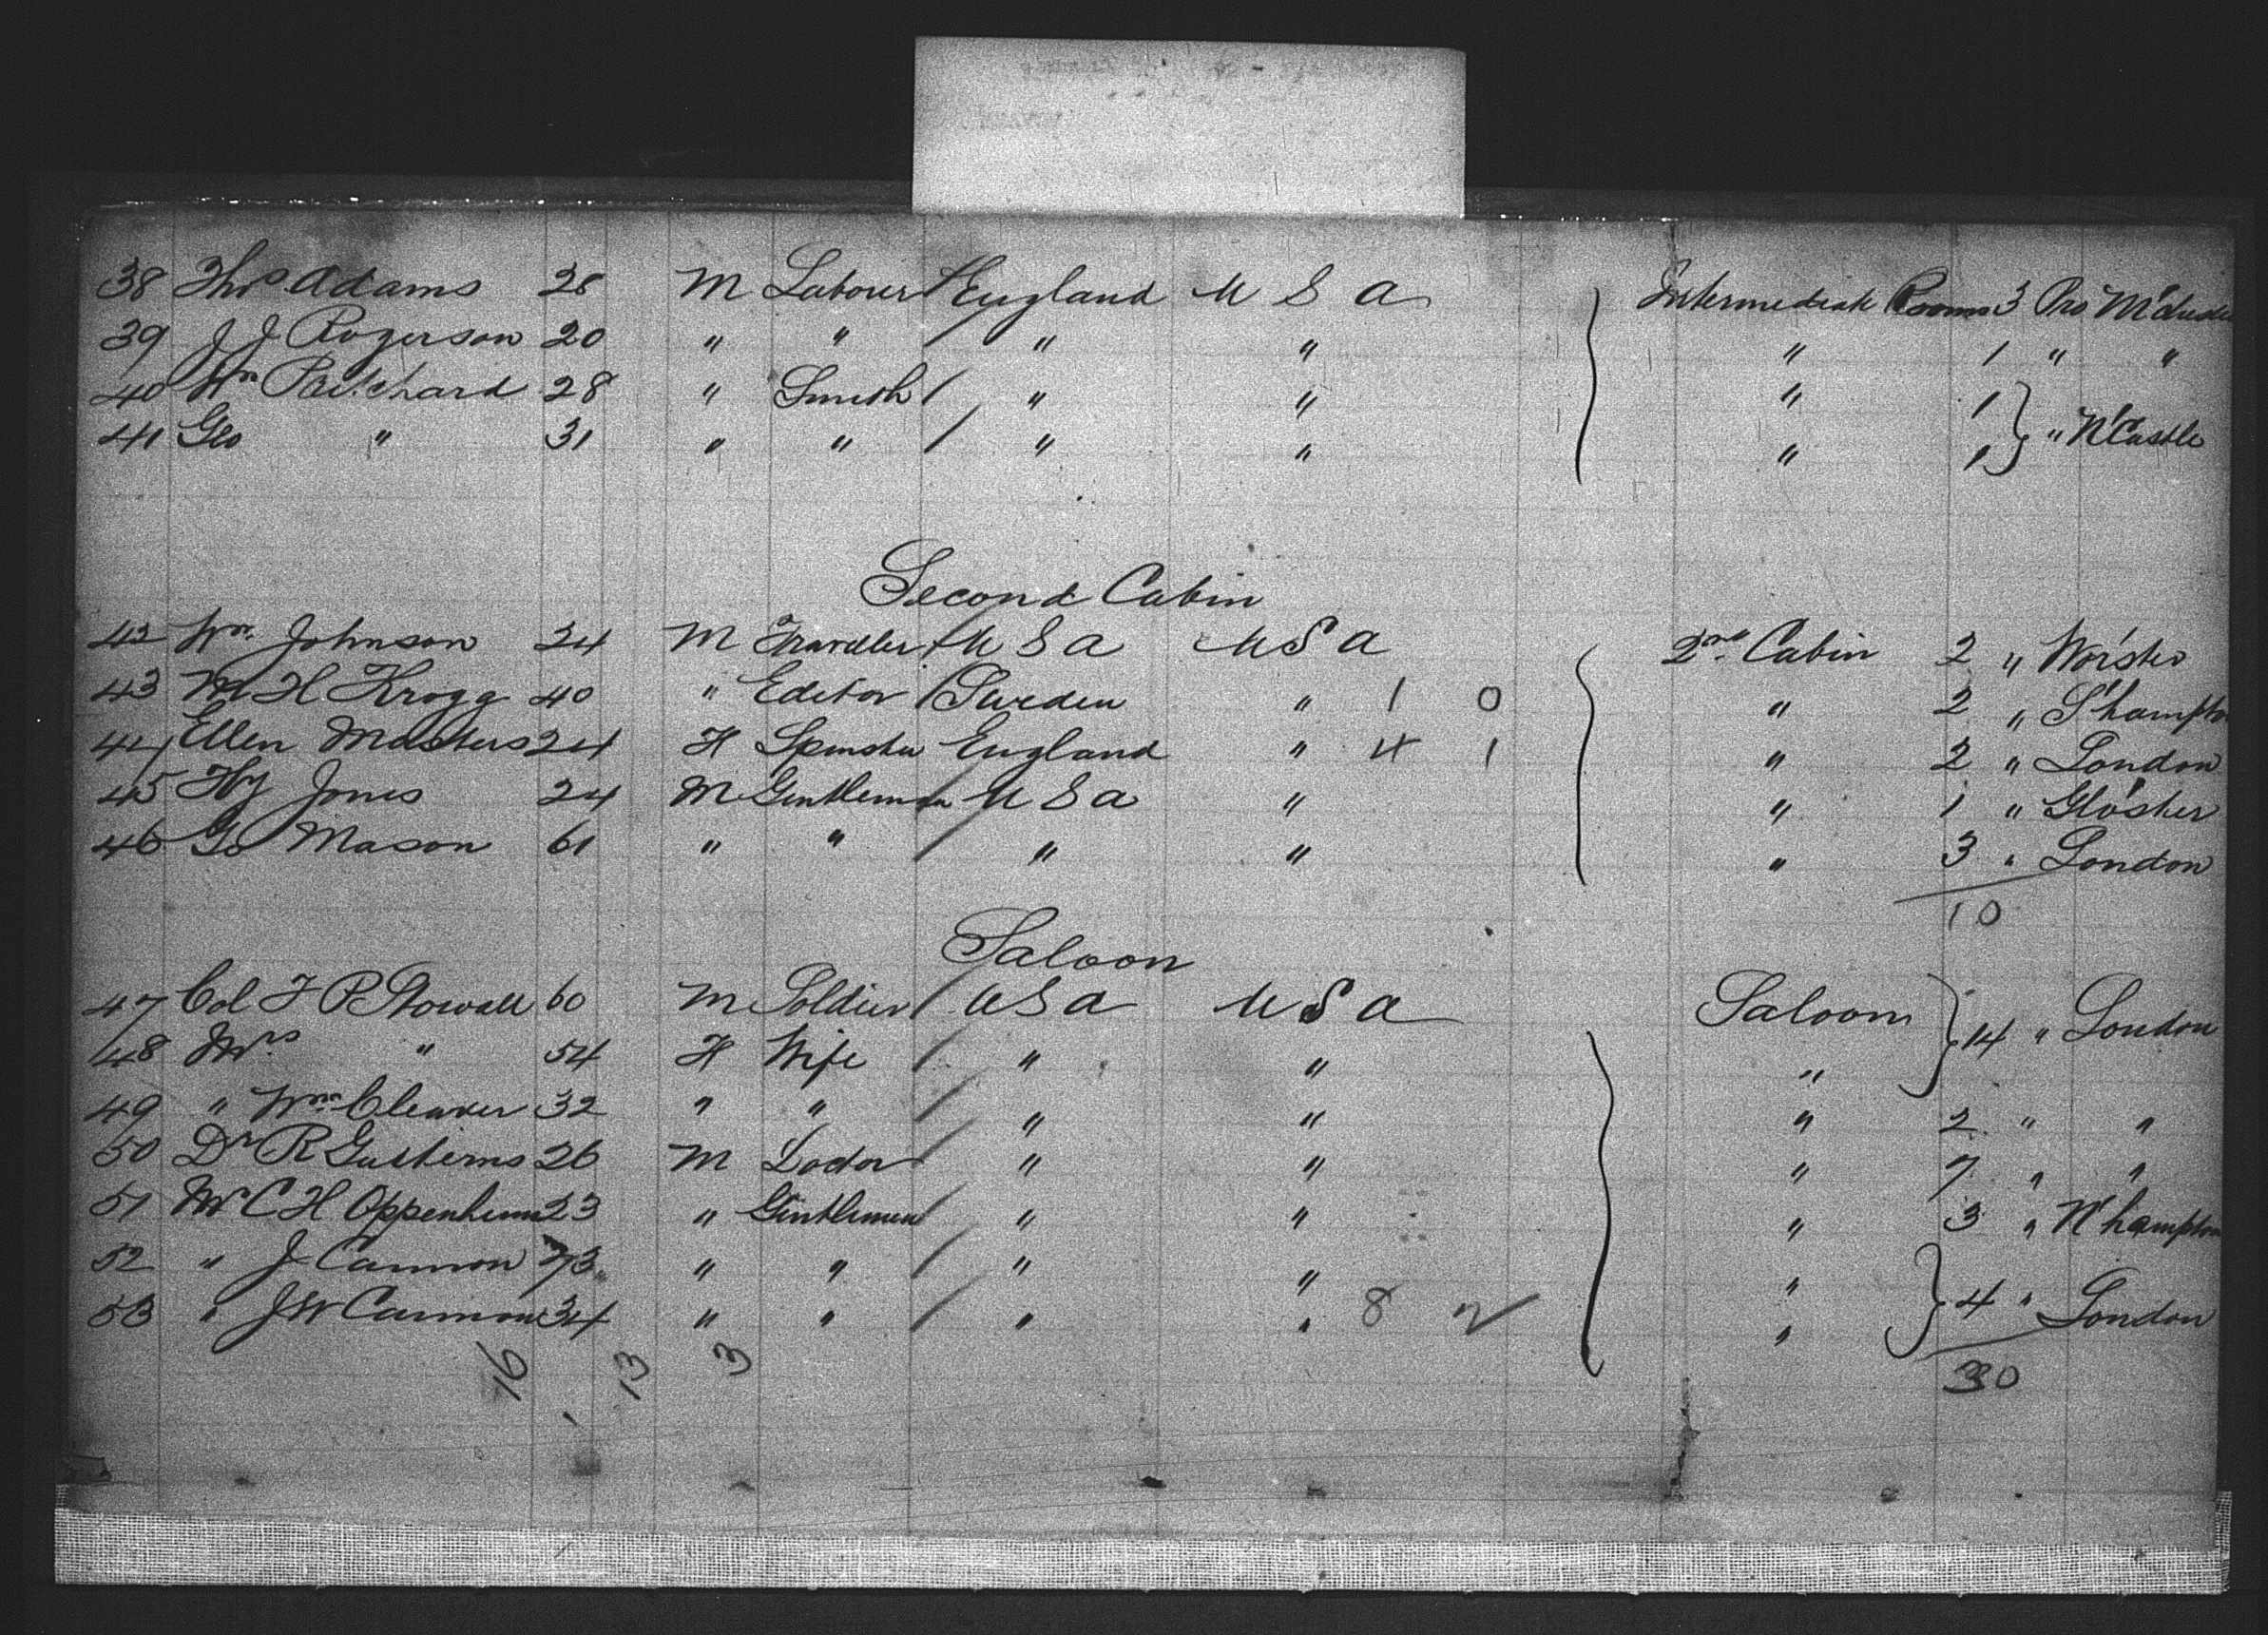 38 Thos Adams 28 M Laborer England U S A Intermediate Rooms 3 Pro M'chester
39 J J Rogerson 20 " " " " " 1 " "
40 Wm Pritchard 28 " Smith " " " 1
41 Geo " 31 " " " " " 1 " N'Castle
Second Cabin
42 Wm Johnson 24 M Traveller U S A U S A 2nd Cabin 2 " Wor'ster
43 M H Krogg 40 " Editor Sweden " 1 0 " 2 " S'hampton
44 Ellen Masters 24 F Spinster England " 4 1 " 2 " London
45 Hy Jones 24 M Gentleman U S A " " 1 " Glo'ster
46 Go Mason 61 " " " " " 3 " London
10
Saloon
47 Col F P Stowall 60 M Soldier U S A U S A Saloon 14 " London
48 Mrs " 54 F Wife " " "
49 " Wm Cleaver 32 " " " " " 2 " "
50 Dr R 26 M Doctor " " " 7 " "
51 Mr C H Oppenheim 23 " Gentleman " " " 3 " N'hampton
52 " J Cannon 73 " " " " "
53 " J W Cannon 34 " " " " 8 2 " 4 " London
16 13 3 30